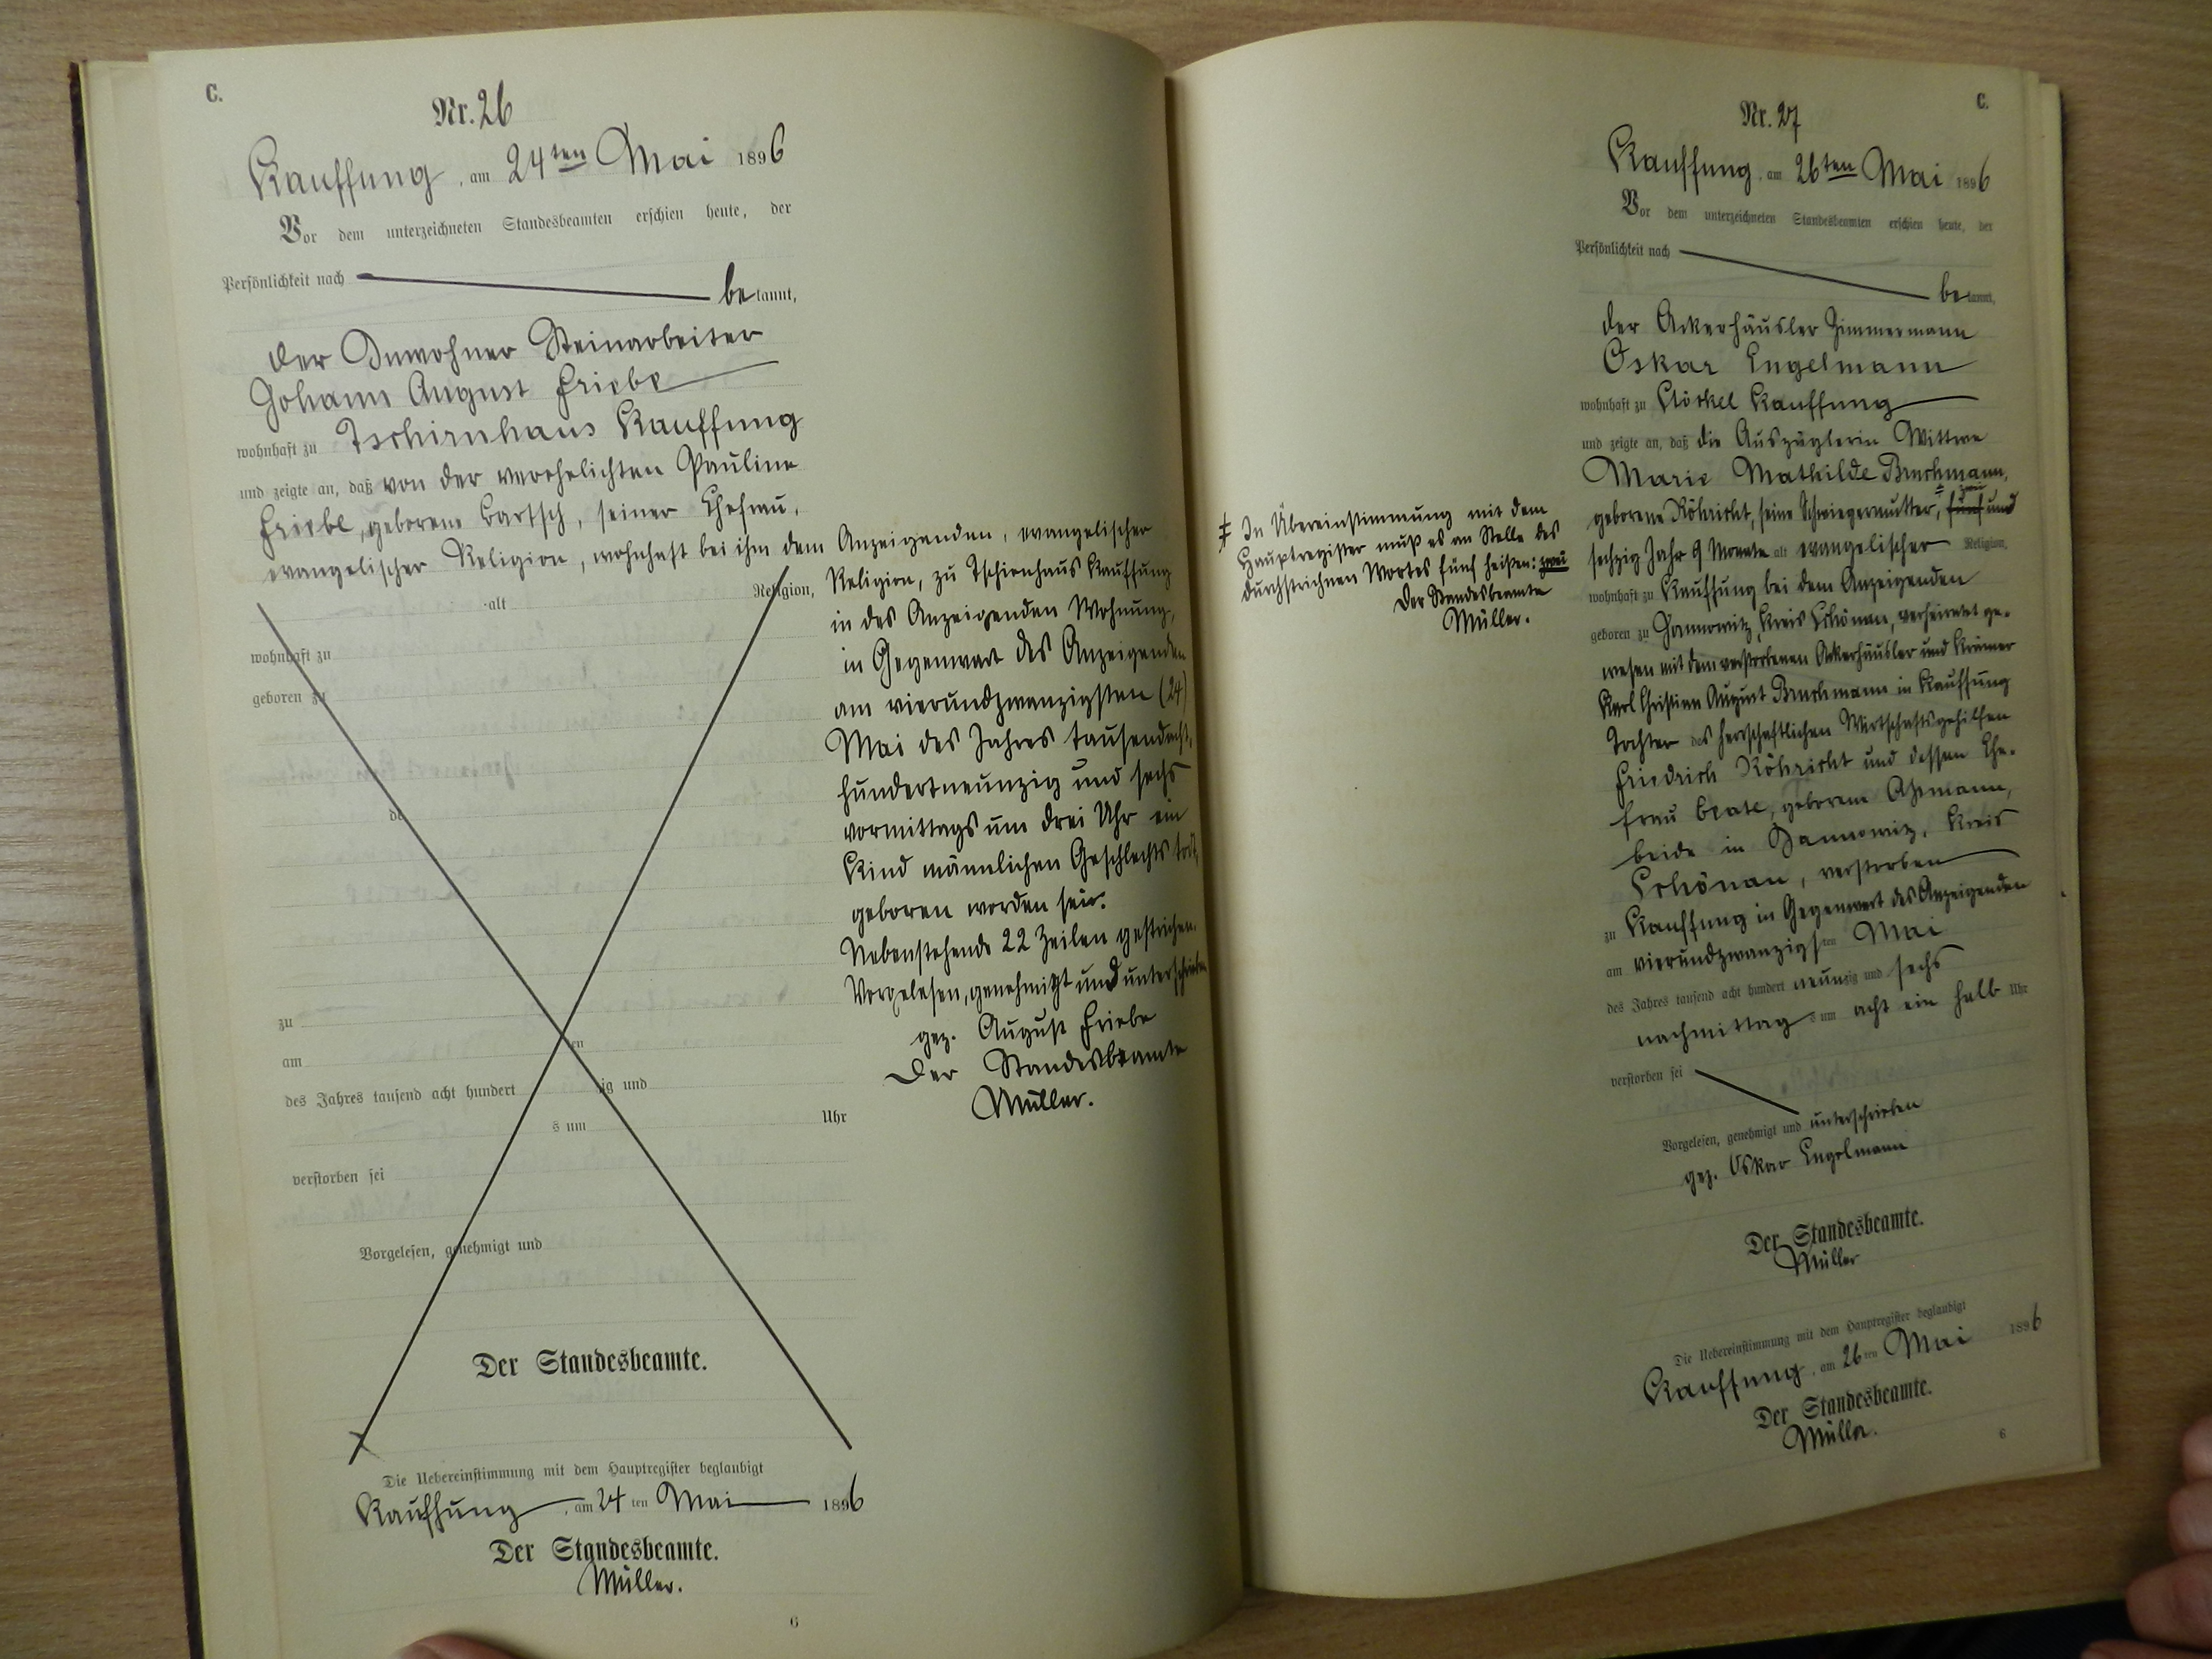 C.
Nr. 26
Kauffung, am 24ten Mai 1896
Vor dem unterzeichneten Standesbeamten erschien heute, der
Persönlichkeit nach
bekannt,
der Inwohner Steinarbeiter
Johann August Friebe
wohnhaft zu Tschirnhaus Kauffung
und zeigte an, daß von der verehelichten Pauline
Friebe, geborene Bartsch, seiner Ehefrau,
evangelischer Religion, wohnhaft bei ihm dem Anzeigenden, evangelischer
alt Religion,
wohnhaft zu
geboren zu
de
zu
am ten
des Jahres tausend acht hundert zig und
s um Uhr
verstorben sei
Vorgelesen, genehmigt und
Der Standesbeamte.
Religion, zu Tschirnhaus Kauffung
in des Anzeigenden Wohnung,
in Gegenwart des Anzeigenden
am vierundzwanzigsten (24)
Mai des Jahres tausendacht,
hundertneunzig und sechs
vormittags um drei Uhr ein
Kind männlichen Geschlechts tot,
geboren worden sei.
Nebenstehende 22 Zeilen gestrichen.
Vorgelesen, genehmigt und unterschrieben
gez. August Friebe
Der Standesbeamte
Müller.
Die Uebereinstimmung mit dem Hauptregister beglaubigt
Kauffung, am 24ten Mai 1896
Der Standesbeamte.
Müller.
6
C.
Nr. 27
Kauffung, am 26ten Mai 1896
Vor dem unterzeichneten Standesbeamten erschien heute, der
Persönlichkeit nach
bekannt,
der Ackerhäusler Zimmermann
Oskar Engelmann
wohnhaft zu Stöckel Kauffung
und zeigte an, daß die Auszüglerin Wittwe
Marie Mathilde Bruchmann,
zwei
geborene Röhricht, seine Schwiegermutter, fünf und
sechzig Jahr 9 Monate alt evangelischer Religion,
wohnhaft zu Kauffung bei dem Anzeigenden
geboren zu Jannowitz, Kreis Schönau, verheiratet ge-
wesen mit dem verstorbenen Ackerhäusler und Krämer
Karl Christian August Bruchmann in Kauffung
Tochter des herrschaftlichen Wirtschaftsgehilfen
Friedrich Röhricht und dessen Ehe-
frau Beate, geborene
beide in Jannowitz, Kreis
Schönau, verstorben
zu Kauffung in Gegenwart des Anzeigenden
am vierundzwanzigsten Mai
des Jahres tausend acht hundert neunzig und sechs
nachmittags um acht ein halb Uhr
verstorben sei
Vorgelesen, genehmigt und unterschrieben
gez. Oskar Engelmann
Der Standesbeamte.
Müller
Die Uebereinstimmung mit dem Hauptregister beglaubigt
Kauffung, am 26ten Mai 1896
Der Standesbeamte.
Müller.
6
In Übereinstimmung mit dem
Hauptregister muß es an Stelle des
durchstrichnen Wortes fünf heißen: zwei
Der Standesbeamte
Müller.